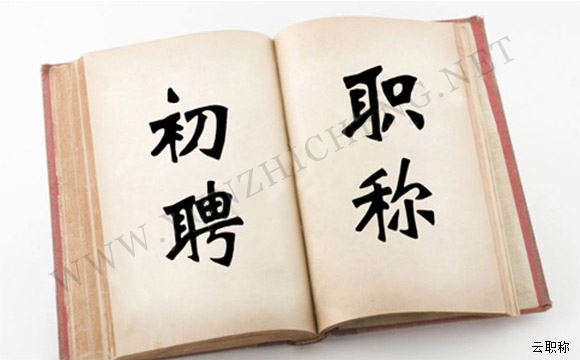 初聘
职称
WWW.YUNZHICHENG.NET
云职称